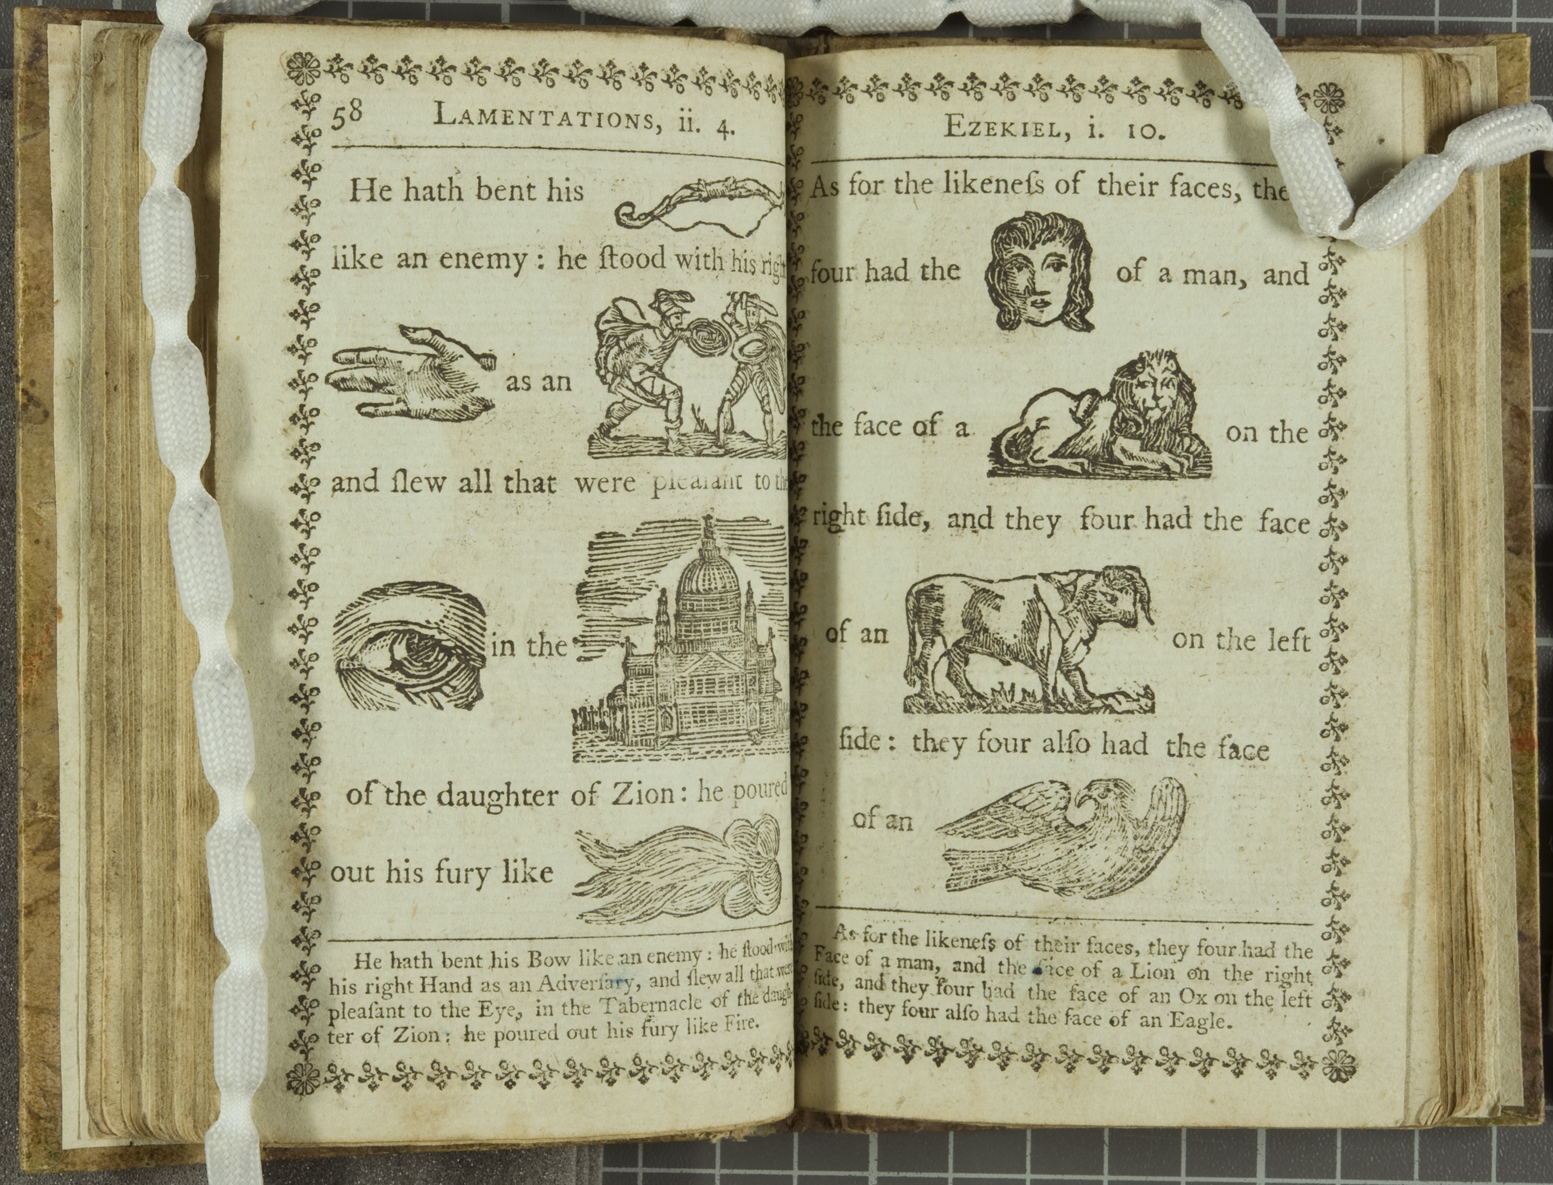 58 LAMENTATIONS, ii. 4.
He hath bent his
like an enemy : he ſtood with his
as an
and ſlew all that were pleaſant to
in the
of the daughter of Zion : he poured
out his fury like
He hath bent his Bow like an enemy : he ſtood
his right Hand as an Adverſary, and ſlew all that were
pleaſant to the Eye, in the Tabernacle of the
ter of Zion : he poured out his fury like Fire.
EZEKIEL, i. 10.
As for the likeneſs of their faces,
four had the of a man, and
the face of a on the
right ſide, and they four had the face
of an on the left
ſide : they four alſo had the face
of an
As for the likeneſs of their faces, they four had the
Face of a man, and the face of a Lion on the right
ſide, and they four had the face of an Ox on the left
ſide : they four alſo had the face of an Eagle.